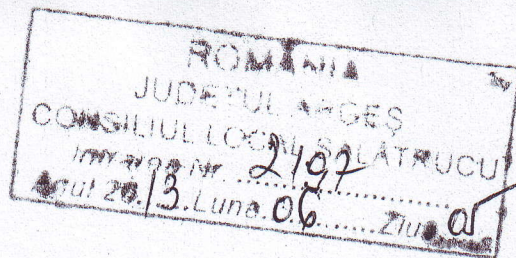 ROMÂNIA
JUDEŢUL ARGEŞ
CONSILIUL LOCAL SĂLĂTRUCU
Intrarea Nr. 2197
Anul 2013. Luna 06 Ziua